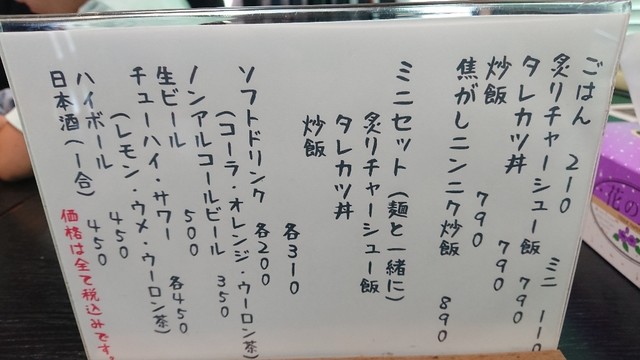 ごはん 210 ミニ 110
炙りチャーシュー飯 790
タレカツ丼 790
炒飯 790
焦がしニンニク炒飯 890
ミニセット(麺と一緒に)
炙りチャーシュー飯
タレカツ丼
炒飯
各310
ソフトドリンク 各200
(コーラ・オレンジ・ウーロン茶)
ノンアルコールビール 350
生ビール 500
チューハイ・サワー 各450
(レモン・ウメ・ウーロン茶)
ハイボール 450
日本酒(1合) 450
価格は全て税込みです。
花の